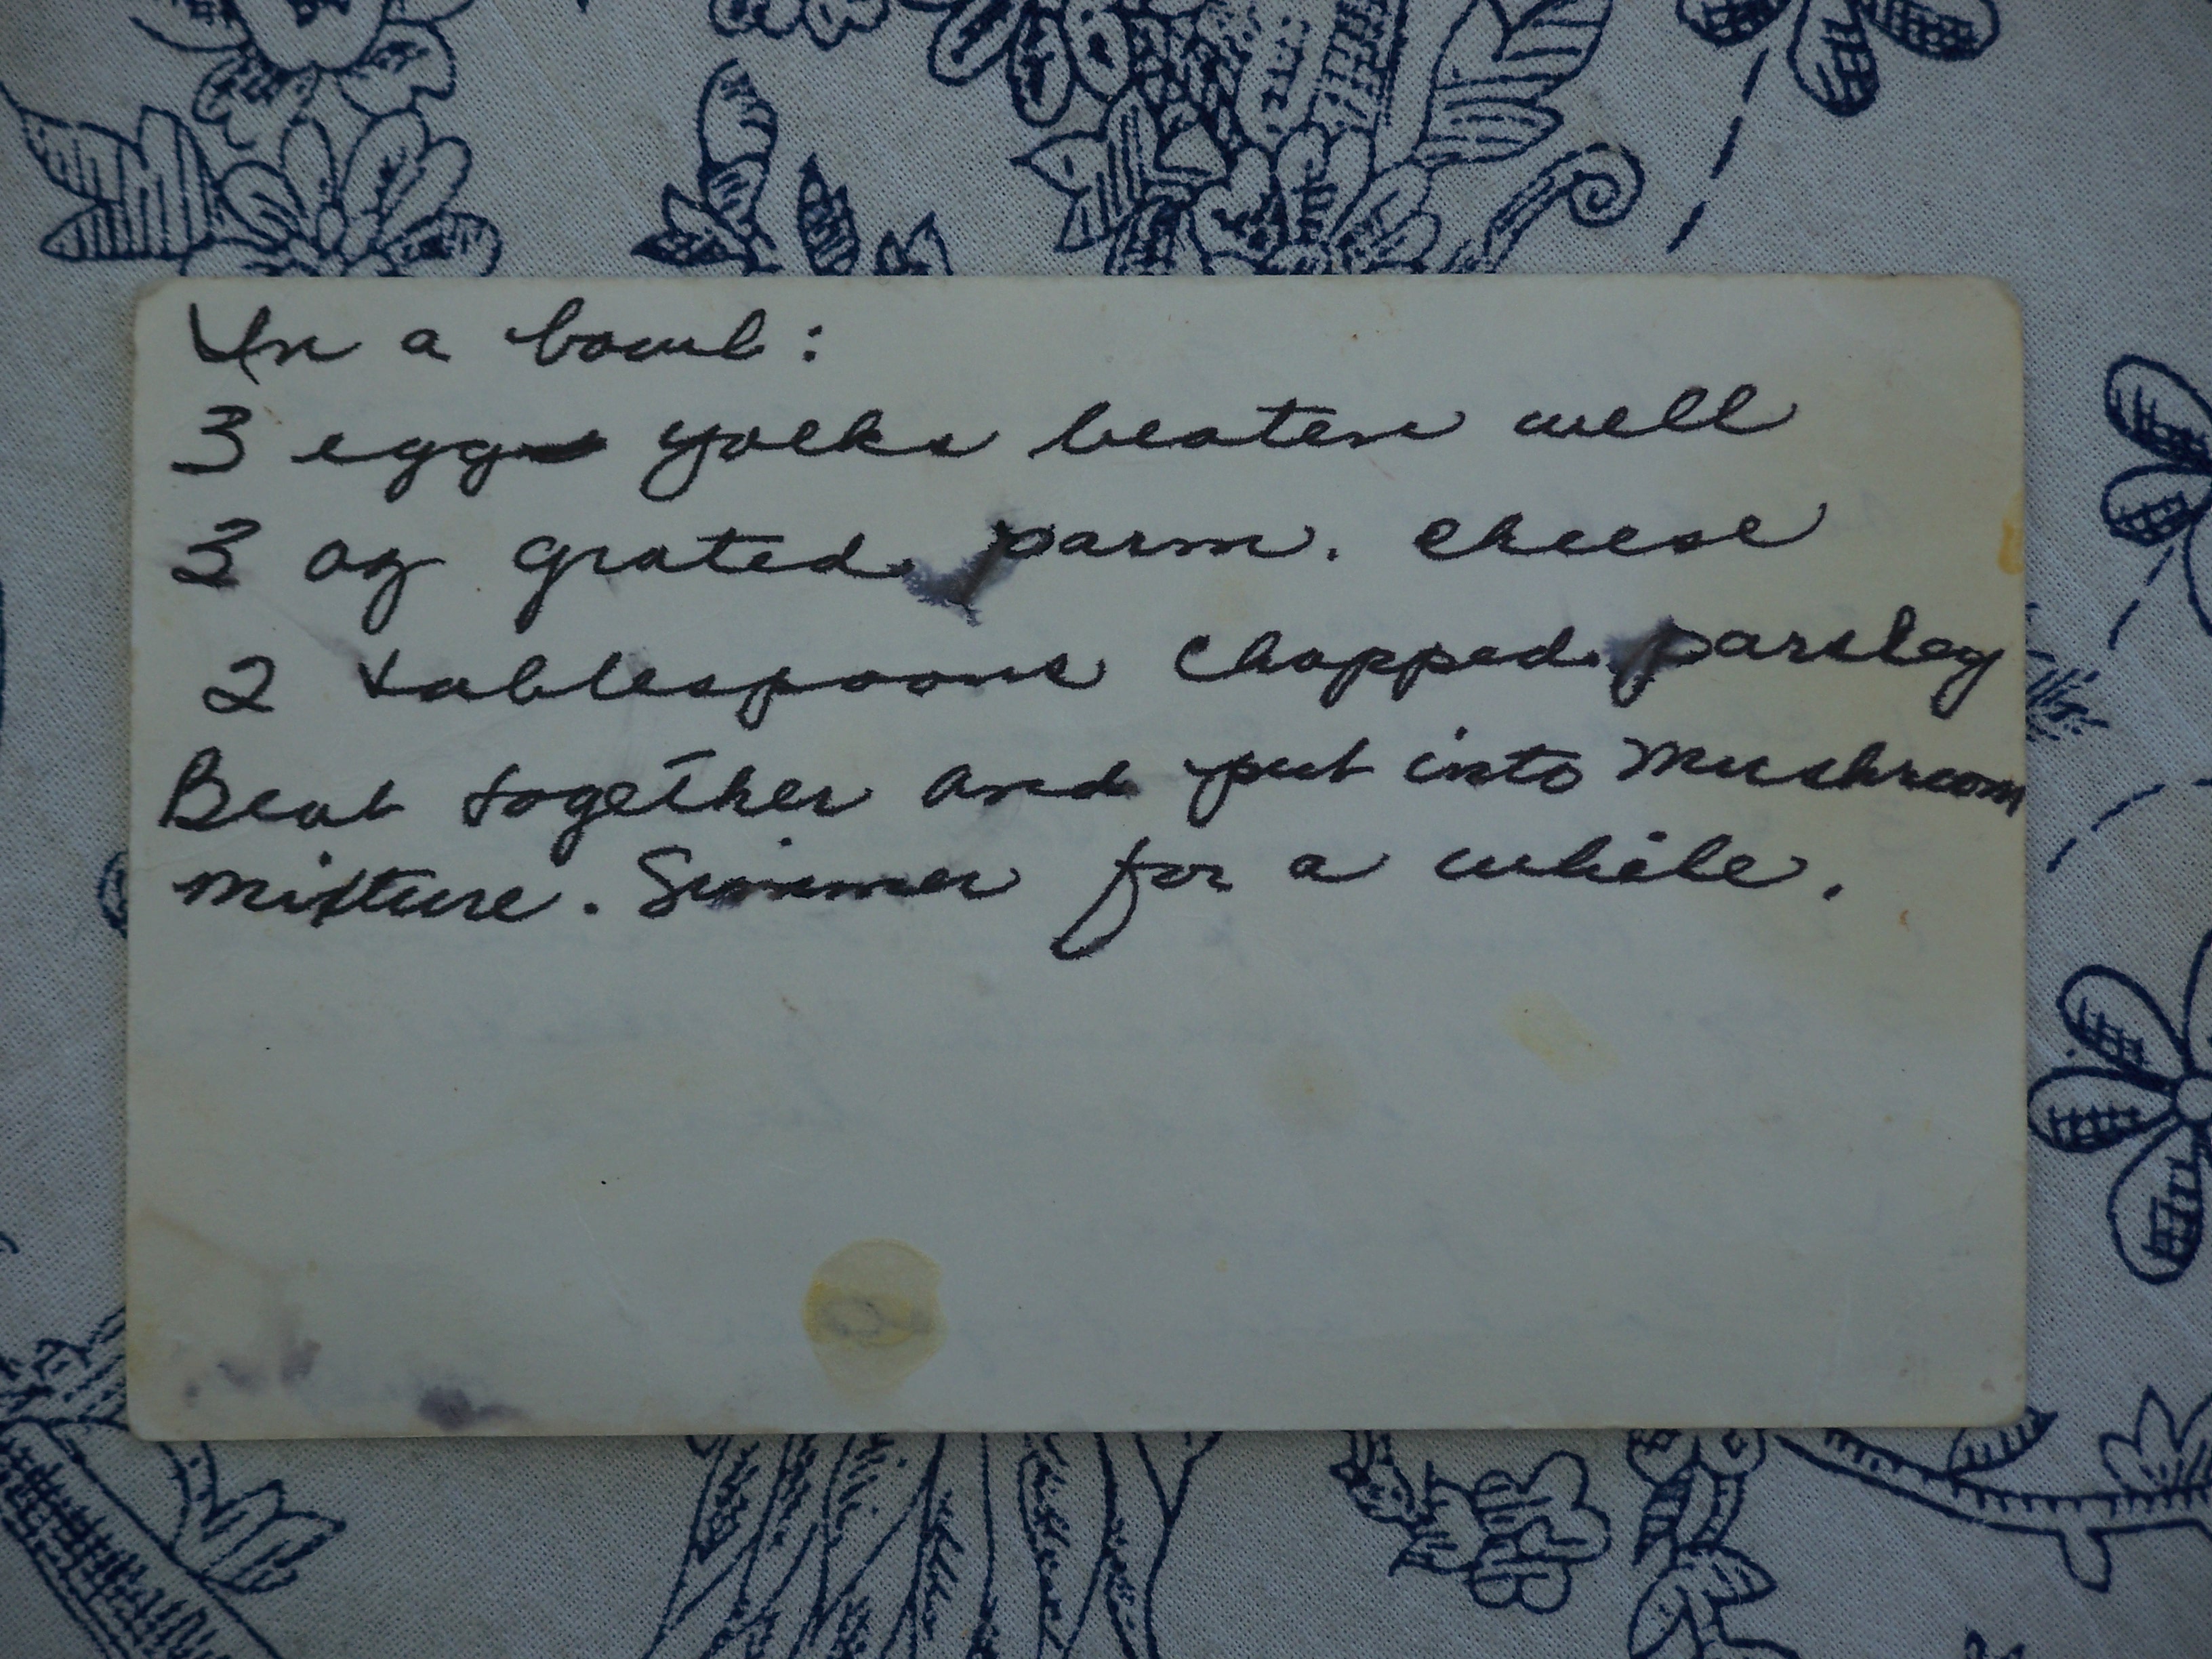 In a bowl:
3 egg yolks beaten well
3 oz grated parm. cheese
2 tablespoons chopped parsley
Beat together and put into mushroom
mixture. Simmer for a while.